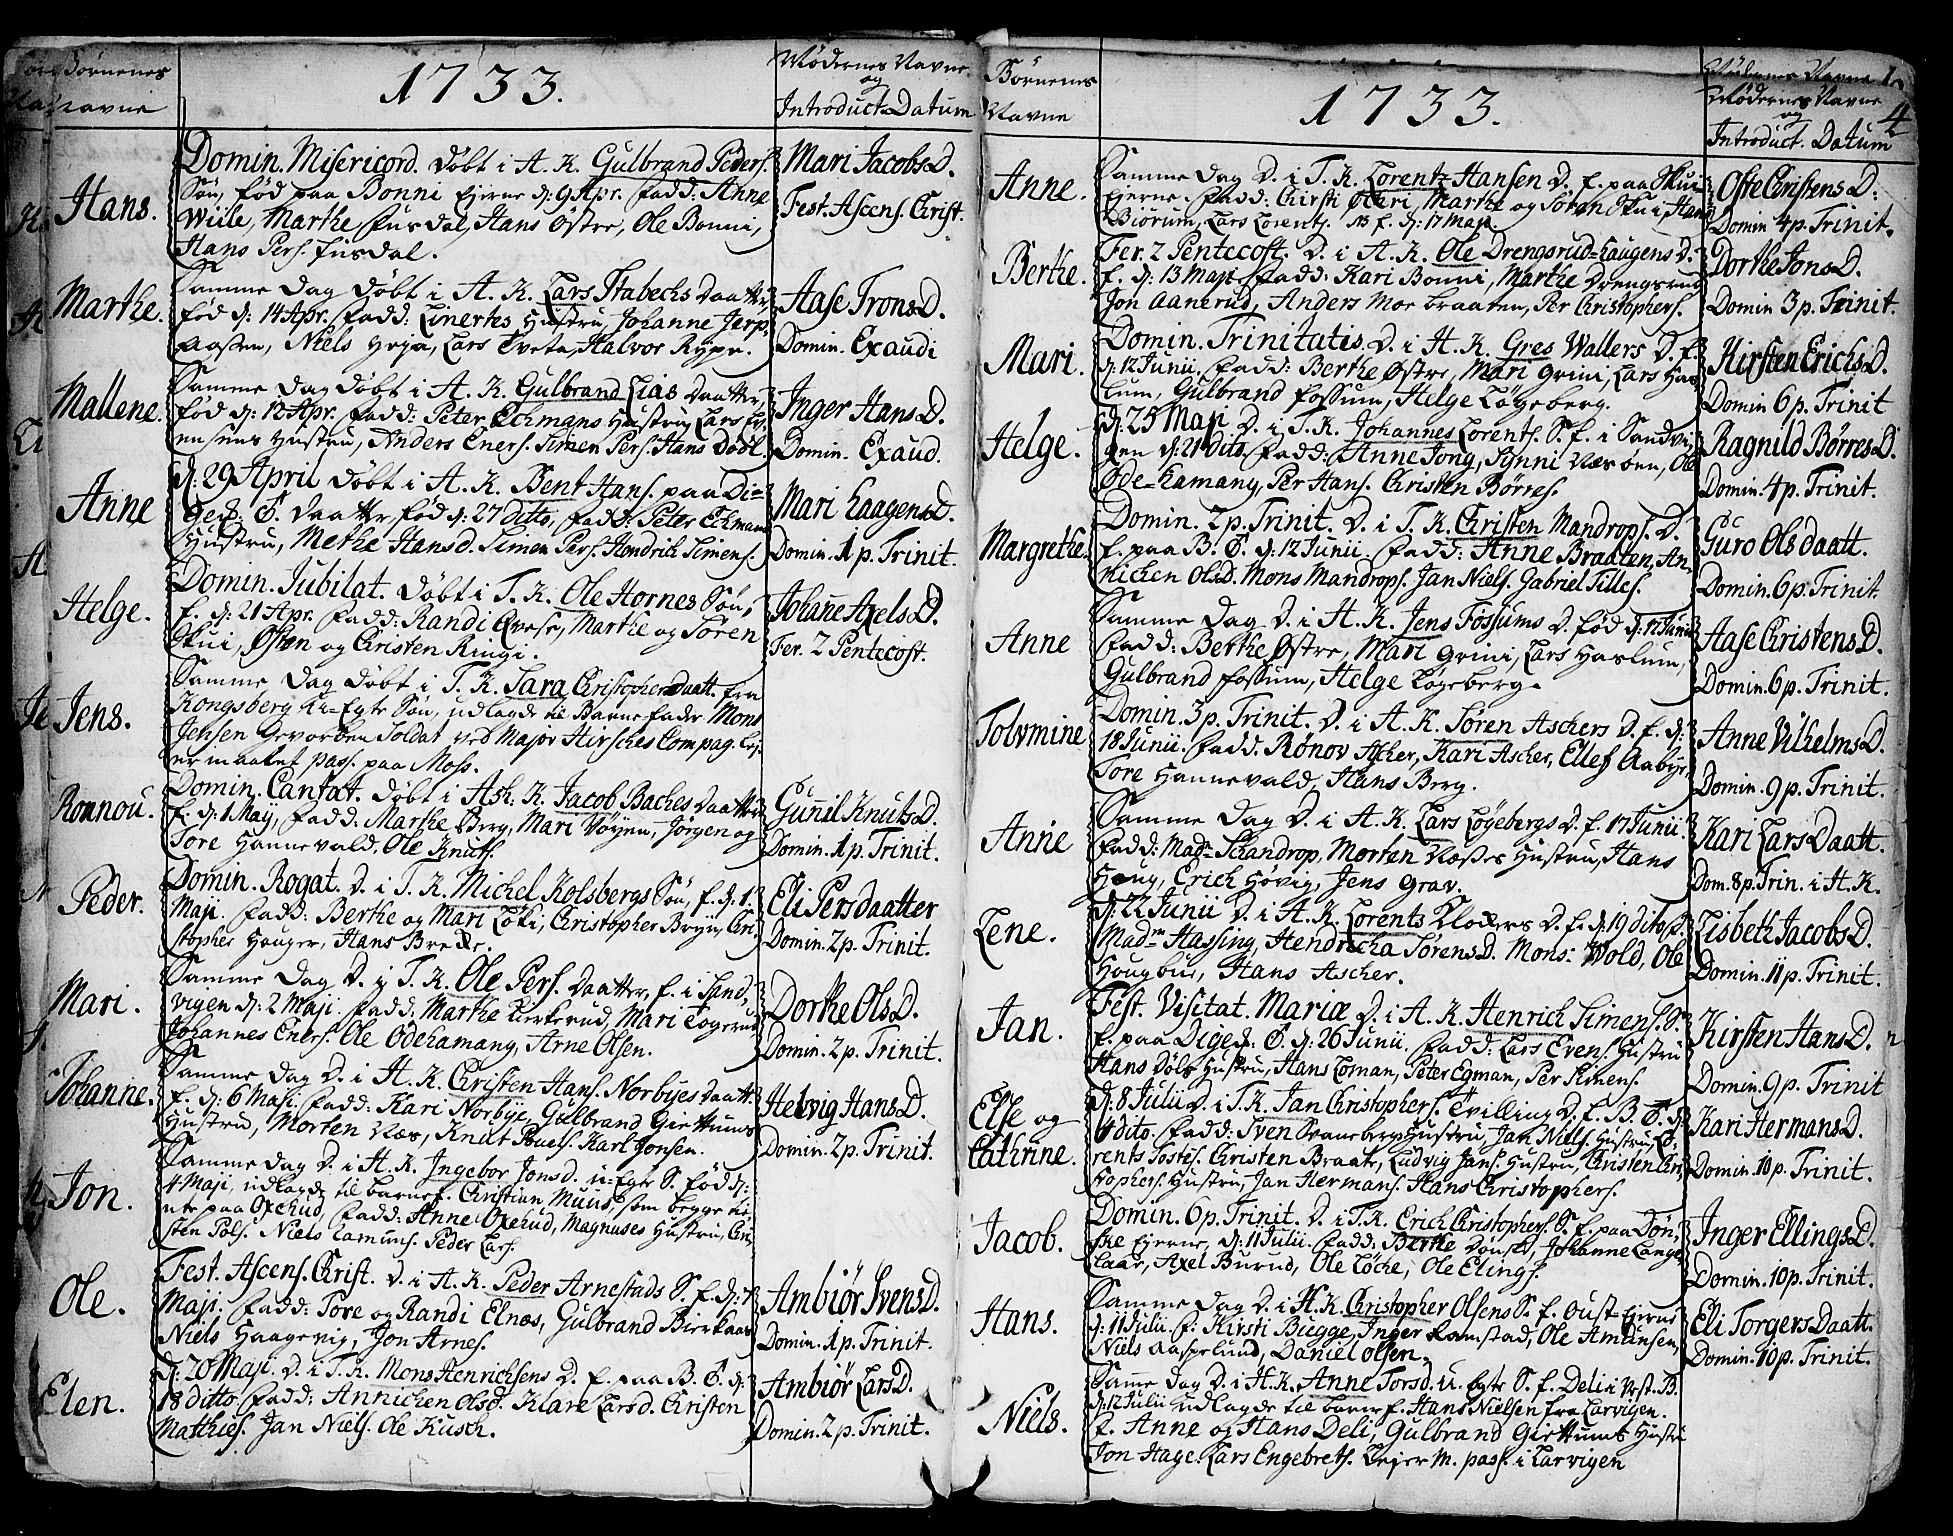 Börnenes
Navne
1733.
Mödernes Navne
og
Introduct. Datum
Hans.
Domin. Misericord. döbt i A. K. Gulbrand Peders.
Sön, föd paa Bonni Ejerne d: 9 Apr. fadd: Anne
Wiile, Marthe fusdal, Hans Østre, Ole Bonni,
Hans Pers. fusdal.
Mari Jacobs D.
Fest. Ascens. Christ.
Marthe.
Samme Dag döbt i A. K. Lars Stabechs Daatter,
föd d: 14 Apr. fadd: Hustru, Johanne Jerp
aasen, Niels Lars Tveta, Halvor Rype.
Aase Trons D.
Domin. Exaudi
Mallene.
Samme Dag döbt i A. K. Gulbrand Lias Daatter,
föd d: 12 Apr. fadd: Peter Echmans Hustru, Lars Ev-
ensens Hustru, Anders Eners. Simen Pers. Hans Dödl.
Inger Hans D.
Domin. Exaud.
Anne
d: 29 April döbt i A. K. Bent Hans. paa Di-
Ged. Ö. Daatter, föd d: 27 ditto, fadd: Peter Echmans
Hustru, Methe Hansd. Simen Pers. Hendrich Simens.
Mari Haagens D.
Domin. 1 p. Trinit.
Helge.
Domin. Jubilat. döbt i T. K. Ole Hornes Sön,
f. d: 21 Apr. fadd: Randi Qvese, Marthe og Sören
Skui, Østen og Christen Ringi.
Johanne Axels D.
Fer. 2 Pentecost.
Jens.
Samme Dag döbt i T. K. Sara Christophersdaatt. fra
Kongsberg Ui-Egte Sön, udlagde til Barnefader Mons
Jensen Gevorben Soldat ved Major Hirsches Compag. Lej-
er maatet pass. paa Moss.
Ronnou.
Domin. Cantat. döbt i Ask. K. Jacob Baches Daatter
f. d: 1 Maji, fadd: Marthe Berg, Mari Vöyen, Jörgen og
Tore Hannevald. Ole Knuts.
Gunil Knuts D.
Domin. 1 p. Trinit.
Peder.
Domin. Rogat. D. i T. K. Michel Kolsbergs Sön, f. d: 1.
Maji. fadd: Berthe og Mari Löki, Christopher Bryn, Chri-
stopher Hauger, Hans Brede.
Eli Persdaatter
Domin. 2 p. Trinit.
Mari.
Samme Dag D. i T. K. Ole Pers. Daatter, f. i Sand-
vigen d: 2 Maji. fadd: Marthe Kirkerud, Mari Togerud
Johannes Eners. Ole Ödehamang, Arne Olsen.
Dorthe Ols D.
Domin. 2 p. Trinit.
Johanne.
Samme Dag D. i A. K. Christen Hans. Norbyes Daatt.
f. d: 6 Maji. fadd: Kari Norbye, Gulbrand Giettums
Hustru, Morten Næs, Knut Pouels. Karl Jonsen.
Helvig Hans D.
Domin. 2 p. Trinit.
Jon.
Samme Dag D. i A. K. Ingebor Jonsd. u-Egte S. föd d:
4 Maji, udlagde til barnef. Christian Muus, som begge ti-
ente paa Oxehud, fadd: Anne Oxehud, Magnuses Hustru, Chri-
sten Pols. Niels Lamuns. Peder Lars.
Ole.
Fest. Ascens. Christ. D. i A. K. Peder Arnestads S. f. d: 7
Maji. fadd: Tore og Randi Elnæs, Gulbrand Bierkaas
Niels Haagevig, Jon Arnes.
Ambiör Svens D.
Domin. 1 p. Trinit.
Elen.
d: 20 Maji. D. i T. K. Mons Henrichsens D. f. paa B. Ö. d:
18 ditto. fadd: Annichen Olsd. Klare Larsd. Christen
Matthies. Jan Niels. Ole Kusch.
Ambiör Lars D.
Domin. 2 p. Trinit.
Börnenes
Navne
1733.
Mödernes Navne
Mödernes Navne
og
Introduct. Datum
4
Anne.
Samme Dag D. i T. K. Lorentz Hansen D. f. paa Skui
Ejerne. fadd: Chirsti Mari, Marthe og Sören Skui, Hans
Biörum, Lars Lorents. NB f. d: 17 Maji.
Oste Christens D.
Domin 4 p. Trinit.
Berthe.
Fer. 2 Pentecost. D. i A. K. Ole Drengsrud-haugens D.
f. d: 13 Maji. fadd: Kari Bonni, Marthe Drengsrud
Jon Aanerud, Anders Moe braaten, Per Christophers.
Dorthe Jons D.
Domin 3 p. Trinit.
Mari.
Domin. Trinitatis D. i H. K. Gres Wallers D. f.
d: 12 Junii. fadd: Berthe Østre, Mari Grini, Lars Has-
lum, Gulbrand Fossum, Helge Lögeberg.
Kirsten Erichs D.
Domin 6 p. Trinit
Helge.
d: 25 Maji D. i T. K. Johannes Lorents. S. f. i Sandvi-
gen d: 21 dito. fadd: Anne Jong, Synni Næsöen, Ole
Öde-hamang, Per Hans. Christen Börres.
Ragnild Börres D.
Domin. 4 p. Trinit.
Margrethe.
Domin. 2 p. Trinit. D. i T. K. Christen Mandrops. D.
f. paa B. Ö. d: 12 Junii. fadd: Anne Braaten, An-
nichen Olsd. Mons Mandrops. Jan Niels. Gabriel Tilles.
Guro Olsdaatt.
Domin. 6 p. Trinit.
Anne
Samme Dag D. i H. K. Jens Fossums D. föd d: 12 Junii
fadd: Berthe Østre, Mari Grini, Lars Haslum,
Gulbrand Fossum, Helge Lögeberg.
Aase Christens D.
Domin. 6 p. Trinit.
Tolvmine
Domin. 3 p. Trinit. D. i A. K. Sören Aschers D. f. d:
18 Junii. fadd: Rönov Ascher, Kari Ascher, Ellef Aabye,
Tore Hannevald, Hans Berg.
Anne Vilhelms D.
Domin. 9 p. Trinit.
Anne
Samme Dag D. i A. K. Lars Lögebergs D. f. 17 Junii.
fadd: Mad. Schandrop, Morten Næsses Hustru, Hans
Houg, Erich Hövig, Jens Grav.
Kari Larsdaatt.
Dom. 8 p. Trin. i H. K.
Lene.
d: 22 Junii D. i A. K. Lorents Klokers D. f. d: 19 dito.
Mad. Hassing, Hendricha Sörensd. Mons: Wold, Ole
Hougbur, Hans Ascher.
Lisbeth Jacobs D.
Domin. 11 p. Trinit.
Jan.
Fest. Visitat. Mariæ D. i A. K. Henrich Simens. S.
f. paa Diged. Ö. d: 26 Junii. fadd: Lars Evens. Hustru
Hans Döls Hustru, Hans Loman, Peter Egman, Per Simens.
Kirsten Hans D.
Domin. 9 p. Trinit
Else og
Cathrine.
d: 8 Julii D. i T. K. Jan Christophers. Tvilling D. f. B. Ö. d:
4 dito. fadd: Sven Svanebergs Hustru, Jan Niels. Hustru, Lo-
rents Tostes. Christen Braate, Ludvig Jans. Hustru, Christen Chri-
stophers. Hustru, Jan Hermans. Hans Christophers.
Kari Hermans D.
Domin. 10 p. Trinit.
Jacob.
Domin. 6 p. Trinit. D. i T. K. Erich Christophers. S. f. paa Dön-
ske Ejerne, d: 11 Julii. fadd: Berthe Dönske, Johanne Lange-
laar, Axel Burud, Ole Löche, Ole Elings.
Inger Ellings D.
Domin. 10 p. Trinit.
Hans.
Samme Dag D. i H. K. Christopher Olsens S. f. Oust-Ejerne
d: 11 Julii f: Kirsti Bugge, Inger Ramstad, Ole Amunsen,
Niels Aaspelund, Daniel Olsen.
Eli Torgersdaatt.
Domin. 10 p. Trinit.
Niels.
Samme Dag D. i H. K. Anne Torsd. u-Egte S. f. Deli i Vest. B.
d: 12 Julii udlagde til barnef. Hans Nielsen fra Larvigen.
f. Anne og Hans Deli, Gulbrand Giettums Hustru
Jon Hage. Lars Engebrets. Lejer M. pass. i Larvigen